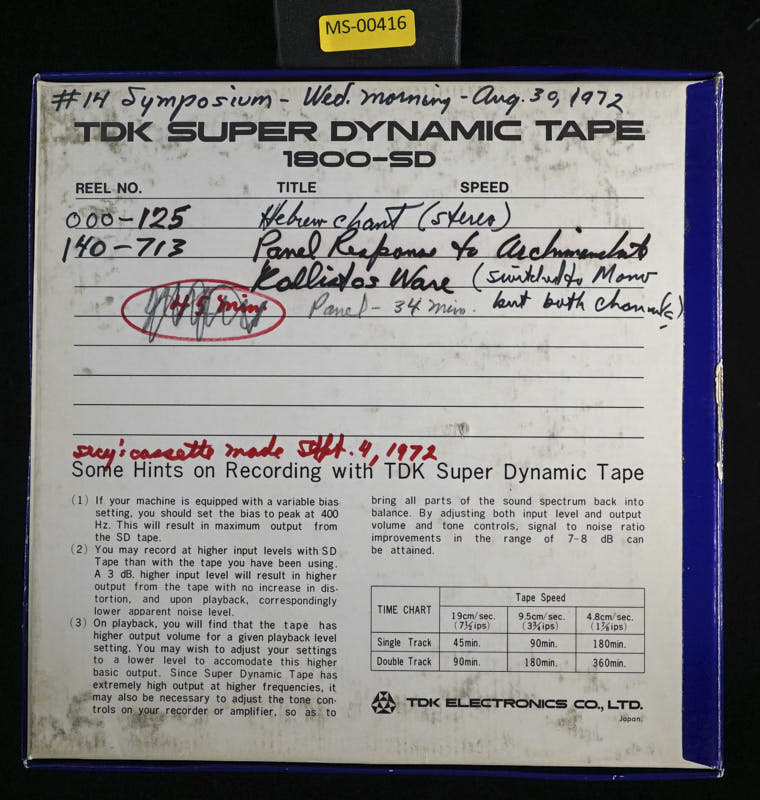 MS-00416
#14 Symposium - Wed. morning - Aug. 30, 1972
TDK SUPER DYNAMIC TAPE
1800-SD
REEL NO. TITLE SPEED
000-125 Hebrew chant (stereo)
140-713 Panel Response to Archimandrite
Kallistos Ware (switched to Mono
45 min Panel - 34 min. but both channels)
secy: cassette made Sept. 4, 1972
Some Hints on Recording with TDK Super Dynamic Tape
(1) If your machine is equipped with a variable bias
setting, you should set the bias to peak at 400
Hz. This will result in maximum output from
the SD tape.
(2) You may record at higher input levels with SD
Tape than with the tape you have been using.
A 3 dB. higher input level will result in higher
output from the tape with no increase in dis-
tortion, and upon playback, correspondingly
lower apparent noise level.
(3) On playback, you will find that the tape has
higher output volume for a given playback level
setting. You may wish to adjust your settings
to a lower level to accomodate this higher
basic output. Since Super Dynamic Tape has
extremely high output at higher frequencies, it
may also be necessary to adjust the tone con-
trols on your recorder or amplifier, so as to
bring all parts of the sound spectrum back into
balance. By adjusting both input level and output
volume and tone controls, signal to noise ratio
improvements in the range of 7-8 dB can
be attained.
TIME CHART Tape Speed
19cm/sec. 9.5cm/sec. 4.8cm/sec.
(7½ips) (3¾ips) (1⅞ips)
Single Track 45min. 90min. 180min.
Double Track 90min. 180min. 360min.
TDK ELECTRONICS CO., LTD.
Japan.